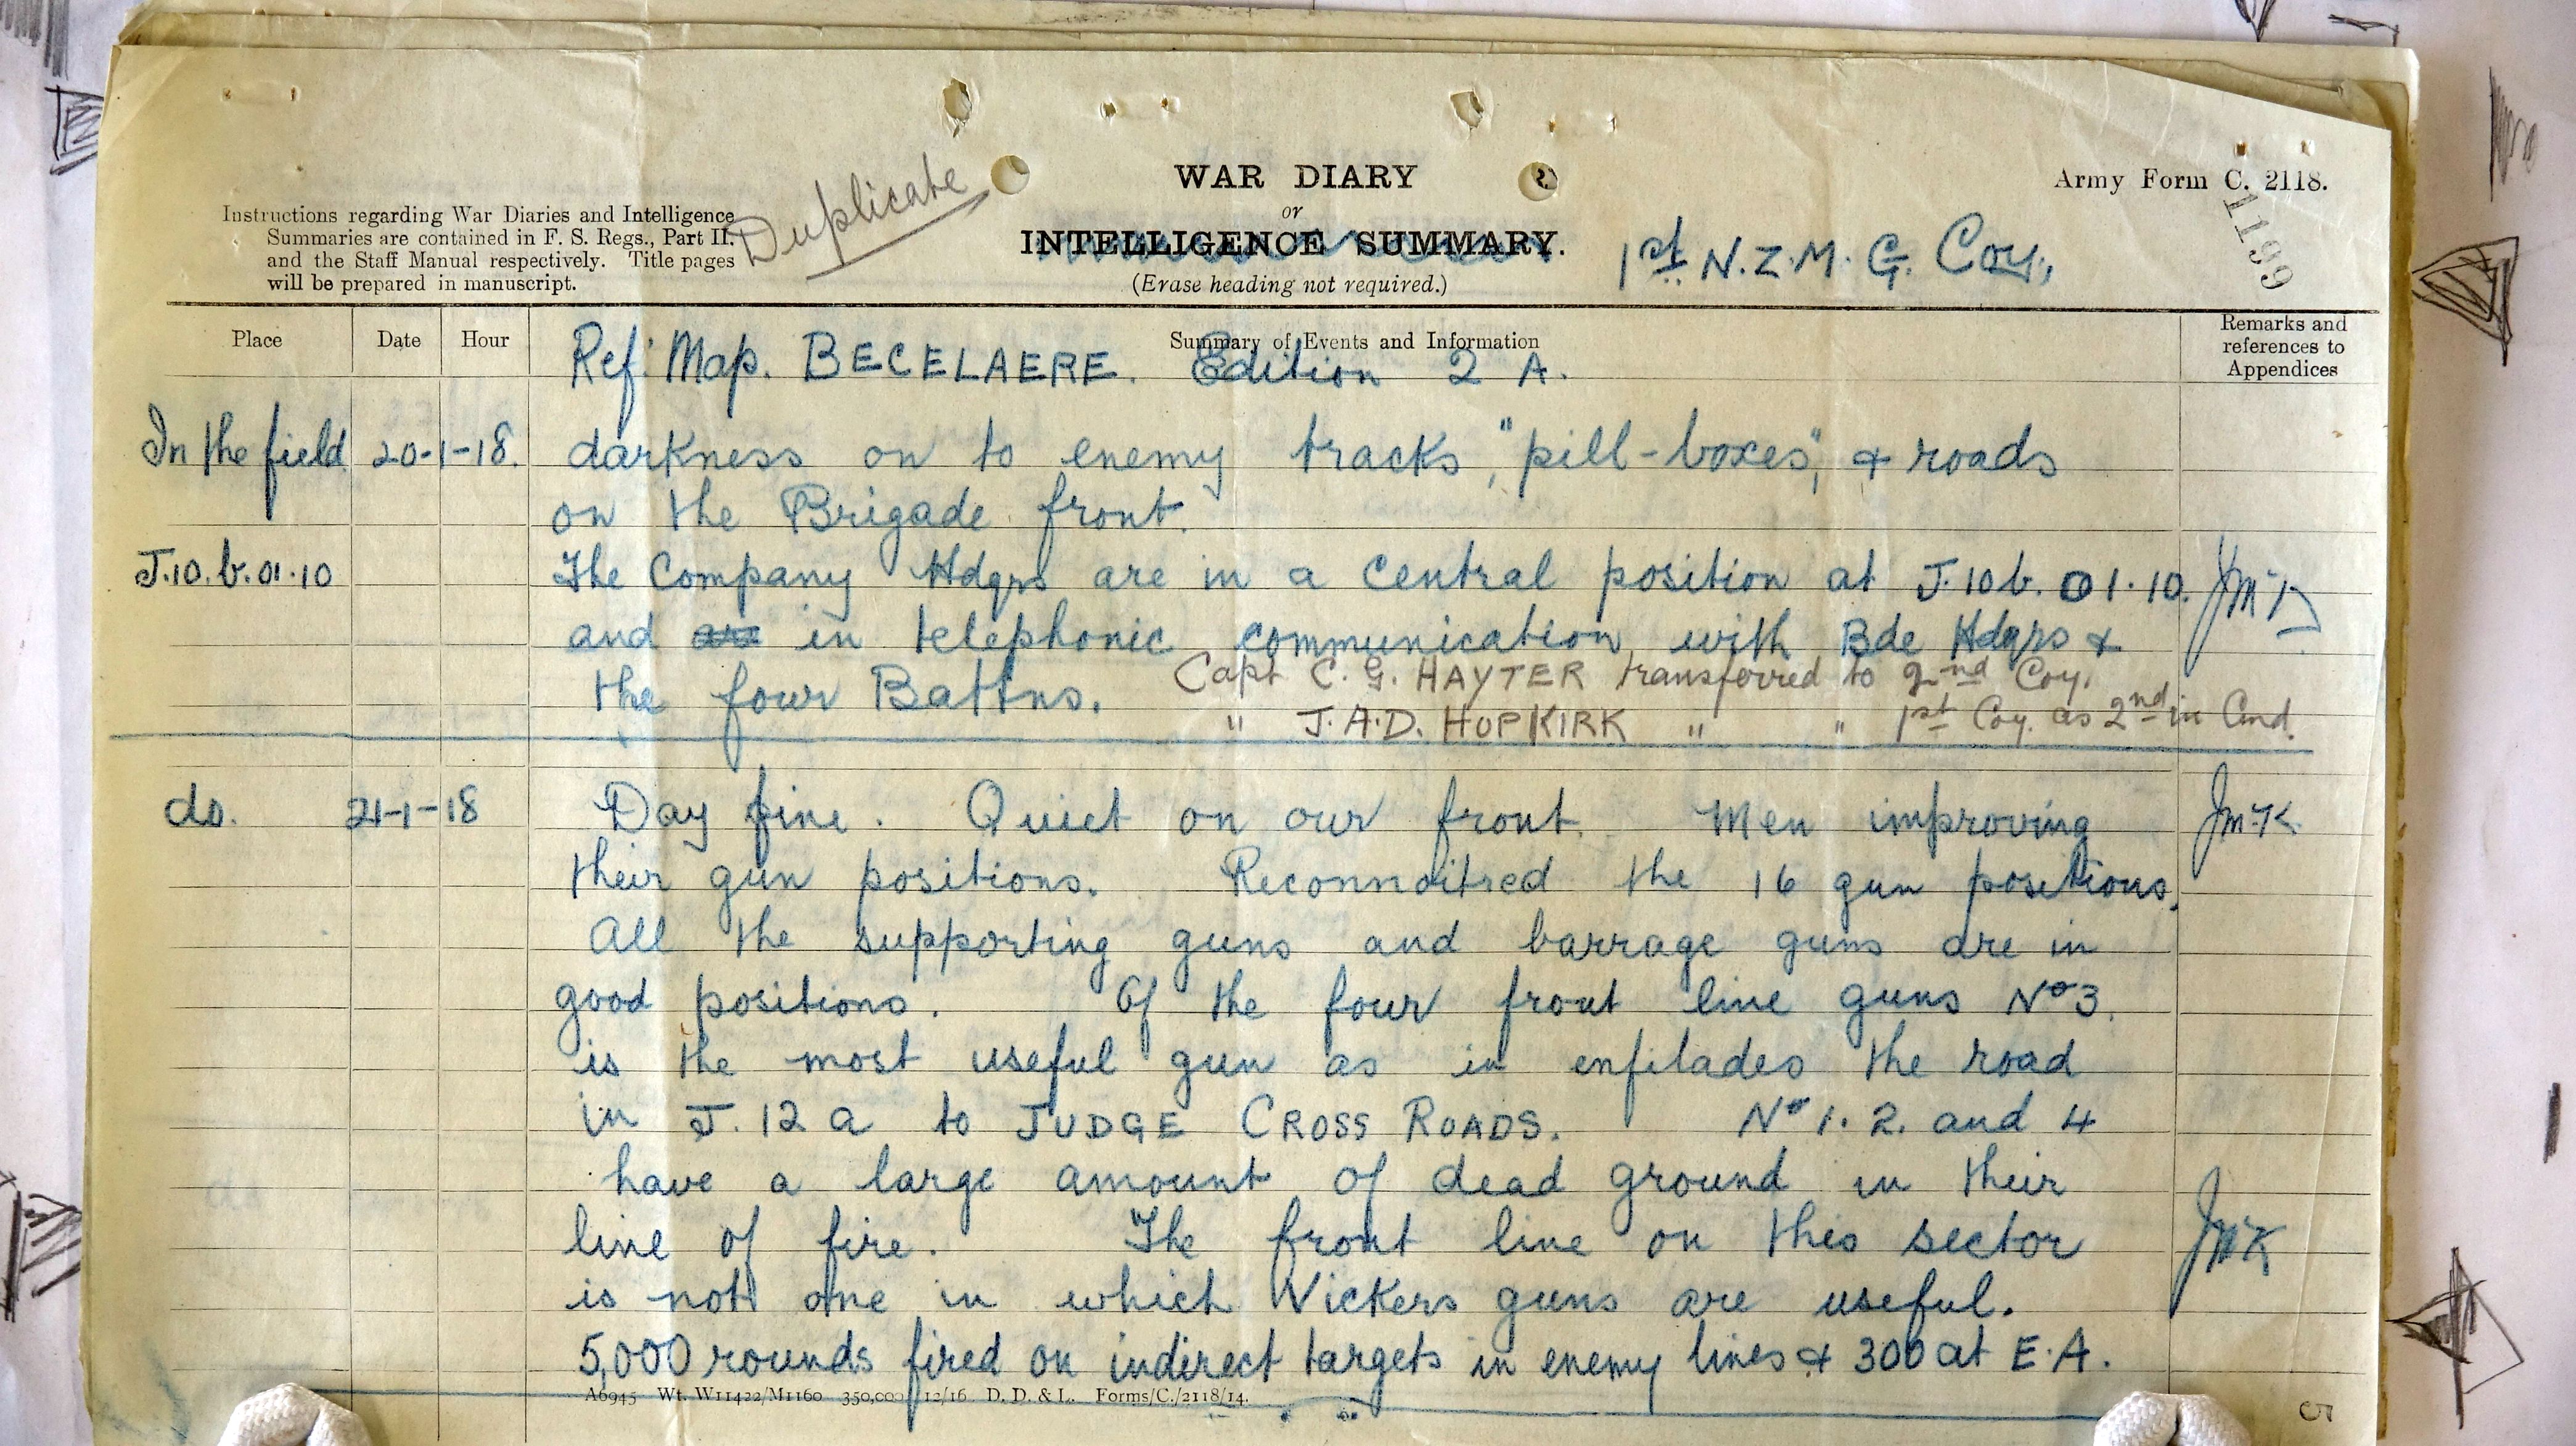 WAR DIARY
or
INTELLIGENCE SUMMARY.
(Erase heading not required.)
Army Form C. 2118.
1199
Instructions regarding War Diaries and Intelligence
Summaries are contained in F. S. Regs., Part II.
and the Staff Manual respectively. Title pages
will be prepared in manuscript.
Duplicate
1st N.Z.M.G. Coy.
Place Date Hour Summary of Events and Information Remarks and
references to
Appendices
Ref: Map. BECELAERE. Edition 2 A.
In the field 20-1-18. darkness on to enemy tracks, "pill-boxes", & roads
on the Brigade front.
J.10.b.01.10 The Company Hdqrs are in a central position at J.10b.01.10.
and are in telephonic communication with Bde Hdqrs &
the four Battns. Capt C. G. HAYTER transferred to 2nd Coy.
" J.A.D. HOPKIRK " " 1st Coy. as 2nd in Cmd.
do. 21-1-18 Day fine. Quiet on our front. Men improving JMcK
their gun positions. Reconnoitred the 16 gun positions.
All the supporting guns and barrage guns are in
good positions. Of the four front line guns No 3.
is the most useful gun as in enfilades the road
in J.12 a to JUDGE CROSS ROADS. No 1. 2. and 4
have a large amount of dead ground in their
line of fire. The front line on this sector JMcK
is not one in which Vickers guns are useful.
5,000 rounds fired on indirect targets in enemy lines & 300 at E.A.
A6945 Wt. W11422/M1160 350,000 12/16 D. D. & L. Forms/C./2118/14.